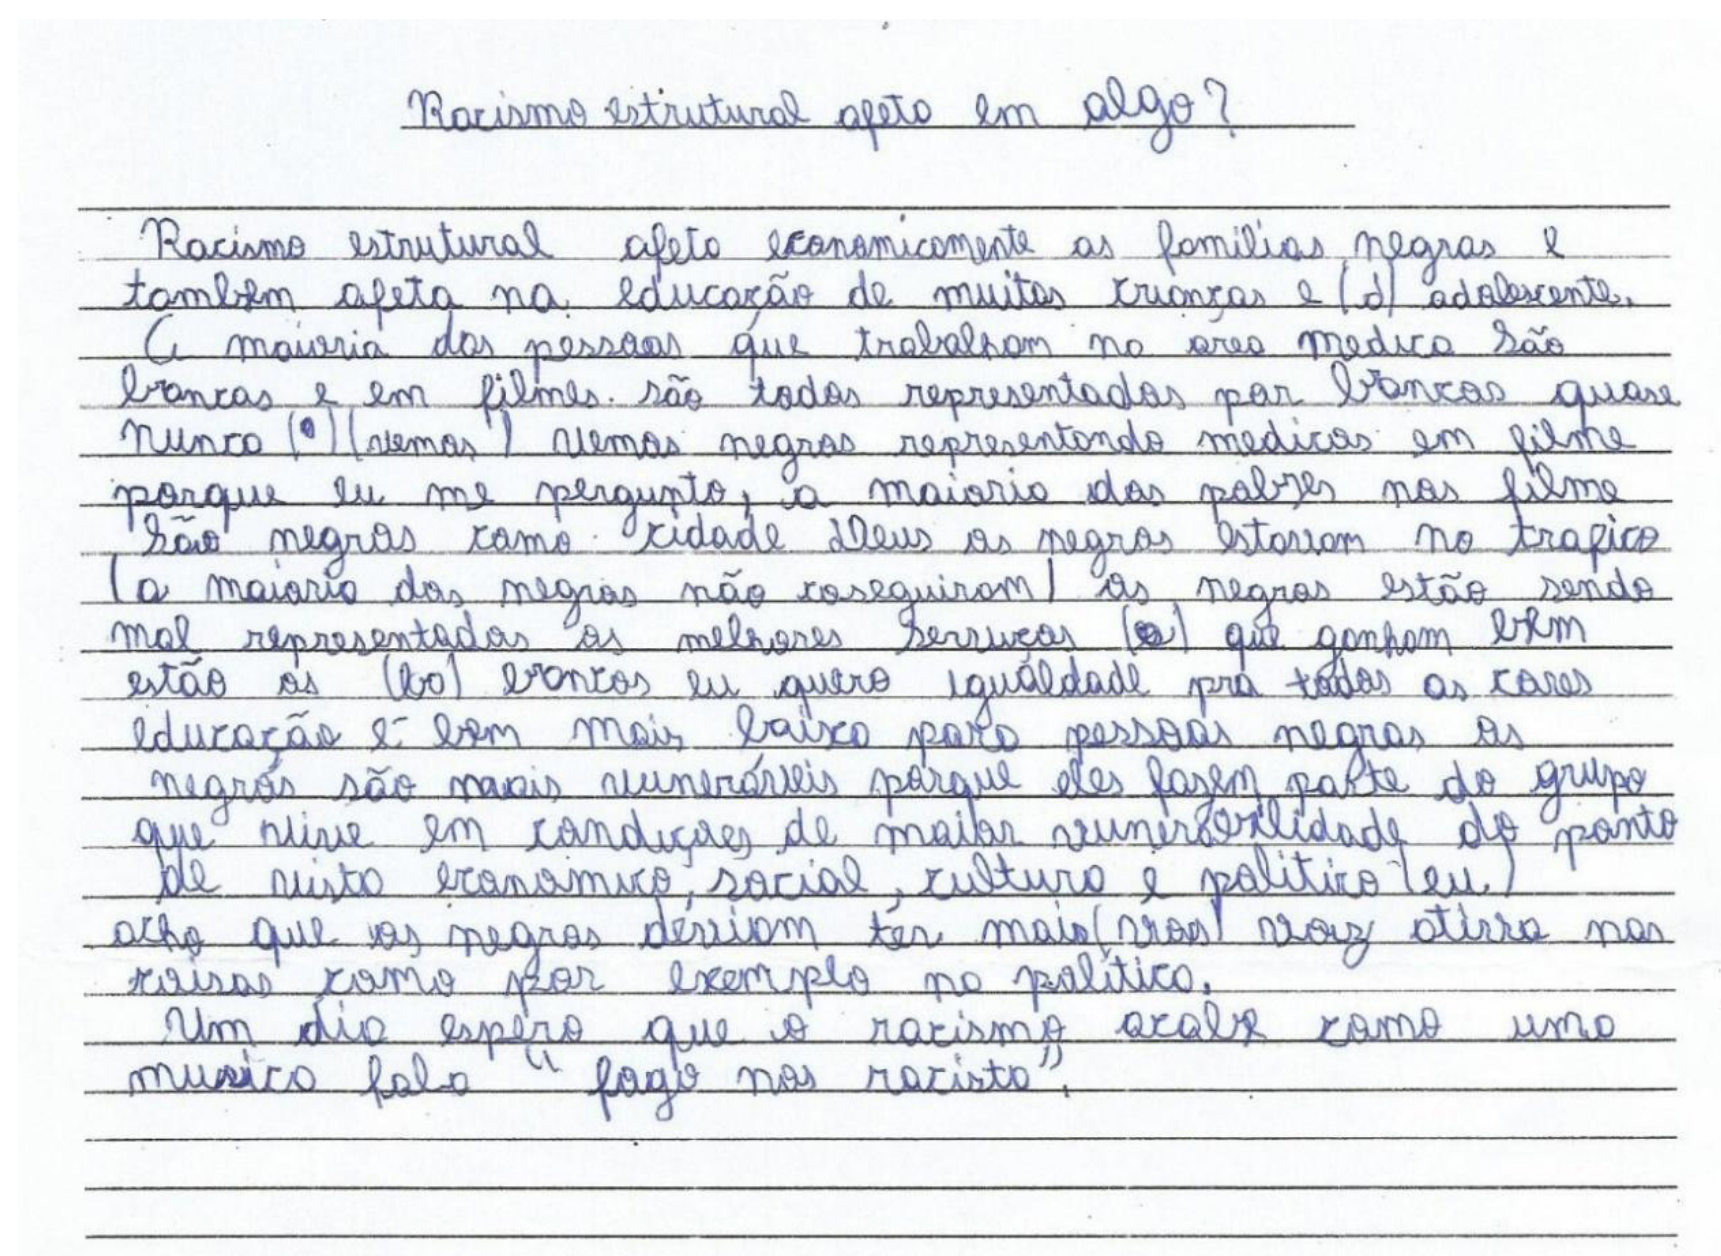 Racismo estrutural afeta em algo?
Racismo estrutural afeta economicamente as famílias negras e
também afeta na educação de muitas crianças e (d) adolescente.
A maioria das pessoas que trabalham na área medica são
brancas e em filmes. são todos representados por brancos quase
nunca (vemos) vemos negros representando medicos em filme
porque eu me pergunto, a maioria dos pobres nos filme
são negros como cidade Deus os negros estavam no trafico
(a maioria dos negros não coseguiram) os negros estão sendo
mal representados os melhores serviços (o) que ganham bem
estão os (bo) brancos eu quero igualdade pra todas as cores
educação é bem mais baixa para pessoas negras os
negros são mais vuneráveis porque eles fazem parte do grupo
que vive em condições de maior vunerabilidade do ponto
de vista economico, social, cultura e politico (eu)
acho que os negros deviam ter mais (voa) voz ativa nas
coisas como por exemplo na política.
Um dia espero que o racismo acabe como uma
musica fala "fogo nos racista".